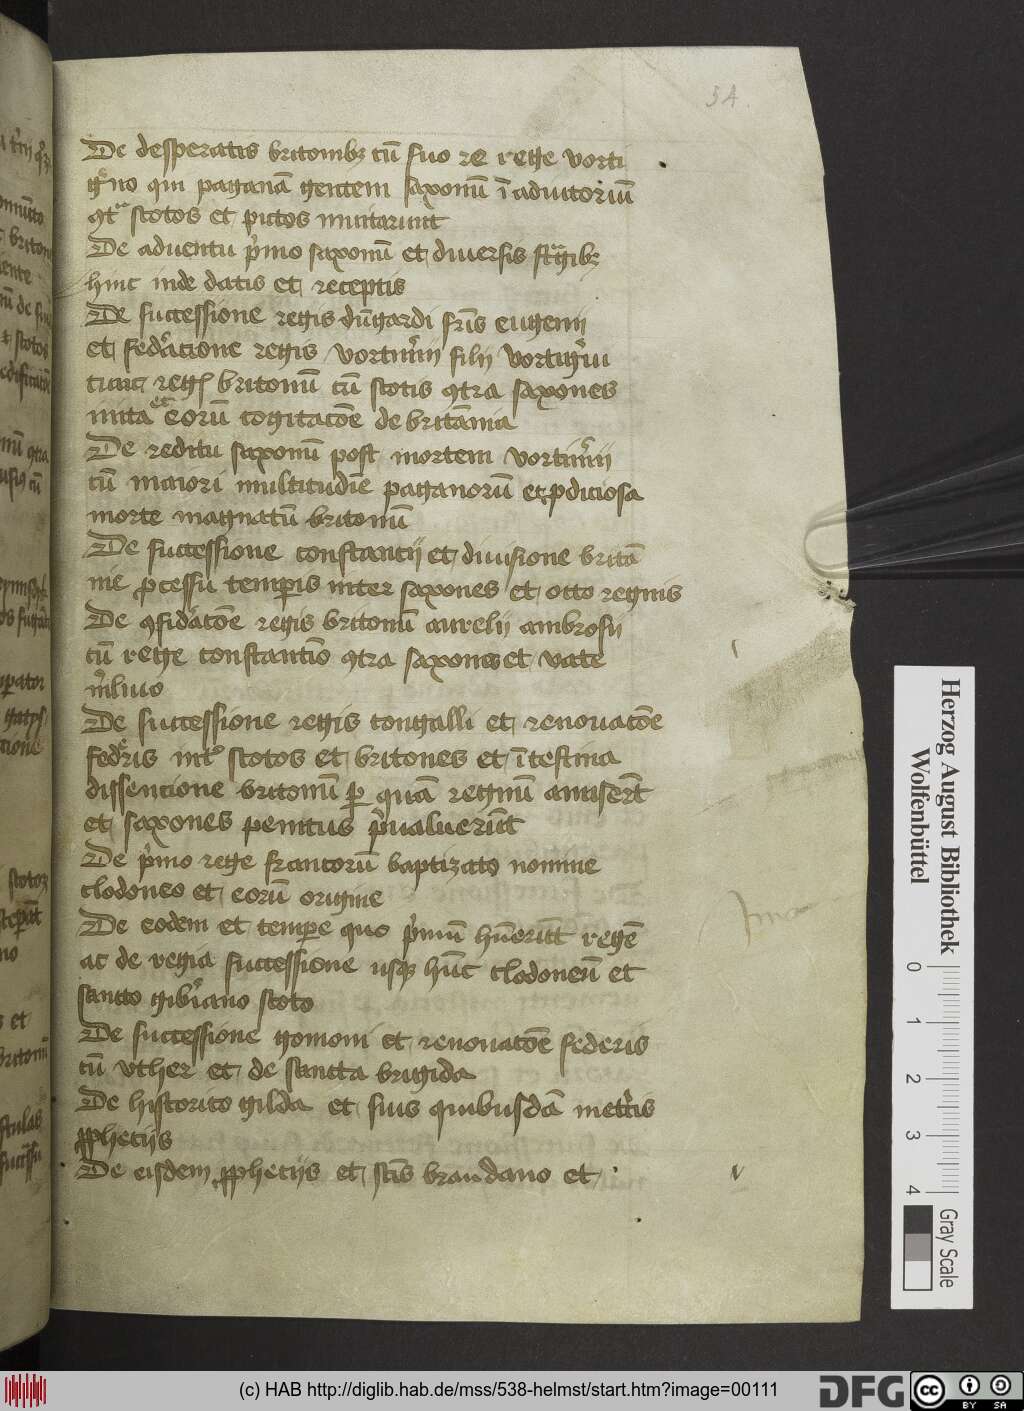 54
De desperatis britonibꝫ cū suo re rege vorti
gͥno qui paganā gentem saxonū ī adiutoriū
ꝯtͣ scotos et pictos inuitarunt
De aduentu pͥmo saxonū et diuersis stͣgibꝫ
hinc inde datis et receptis
De successione regis dūgardi fr̄is eugenij
et fedͤacione regis vortimͤij filij vortigͤni
tunc regꝭ britonū cū scotis ꝯtra saxones
inita et eorū cogitacōe de britānia
De reditu saxonū post mortem vortimͤij
cū maiori multitudīe paganorū et ꝓdiciosa
morte magnatū britonū
De successione constancij et diuisione britā
nie ꝓcessu temꝑis inter saxones et octo regnis
De ꝯfidācōe regis britonū aurelij ambrosij
cū rege constantīo ꝯtra saxones et vate
mͤlino
De successione regis congalli et renouacōe
fedͤris intͬ scotos et britones et ītestina
dissencione britonū ꝑ quā regnū amiserūt
et saxones penitus pͤualuerūt
De pͥmo rege francorū baptizato nomine
clodoneo et eorū origine
De eodem et tempͤe quo pͥmū hūerūt regē
ac de regia successione usqꝫ hūc clodoneū et
sancto gibͥiano scoto
De successione gomoni et renouacōe federis
cū vther et de sancta brigida
De historico gilda et suis quibusdā metͥcis
ꝓphecijs
De eisdem ꝓphecijs et sc̄is brandano et
Herzog August Bibliothek
Wolfenbüttel
0 1 2 3 4
Gray Scale
(c) HAB http://diglib.hab.de/mss/538-helmst/start.htm?image=00111
DFG
cc BY SA